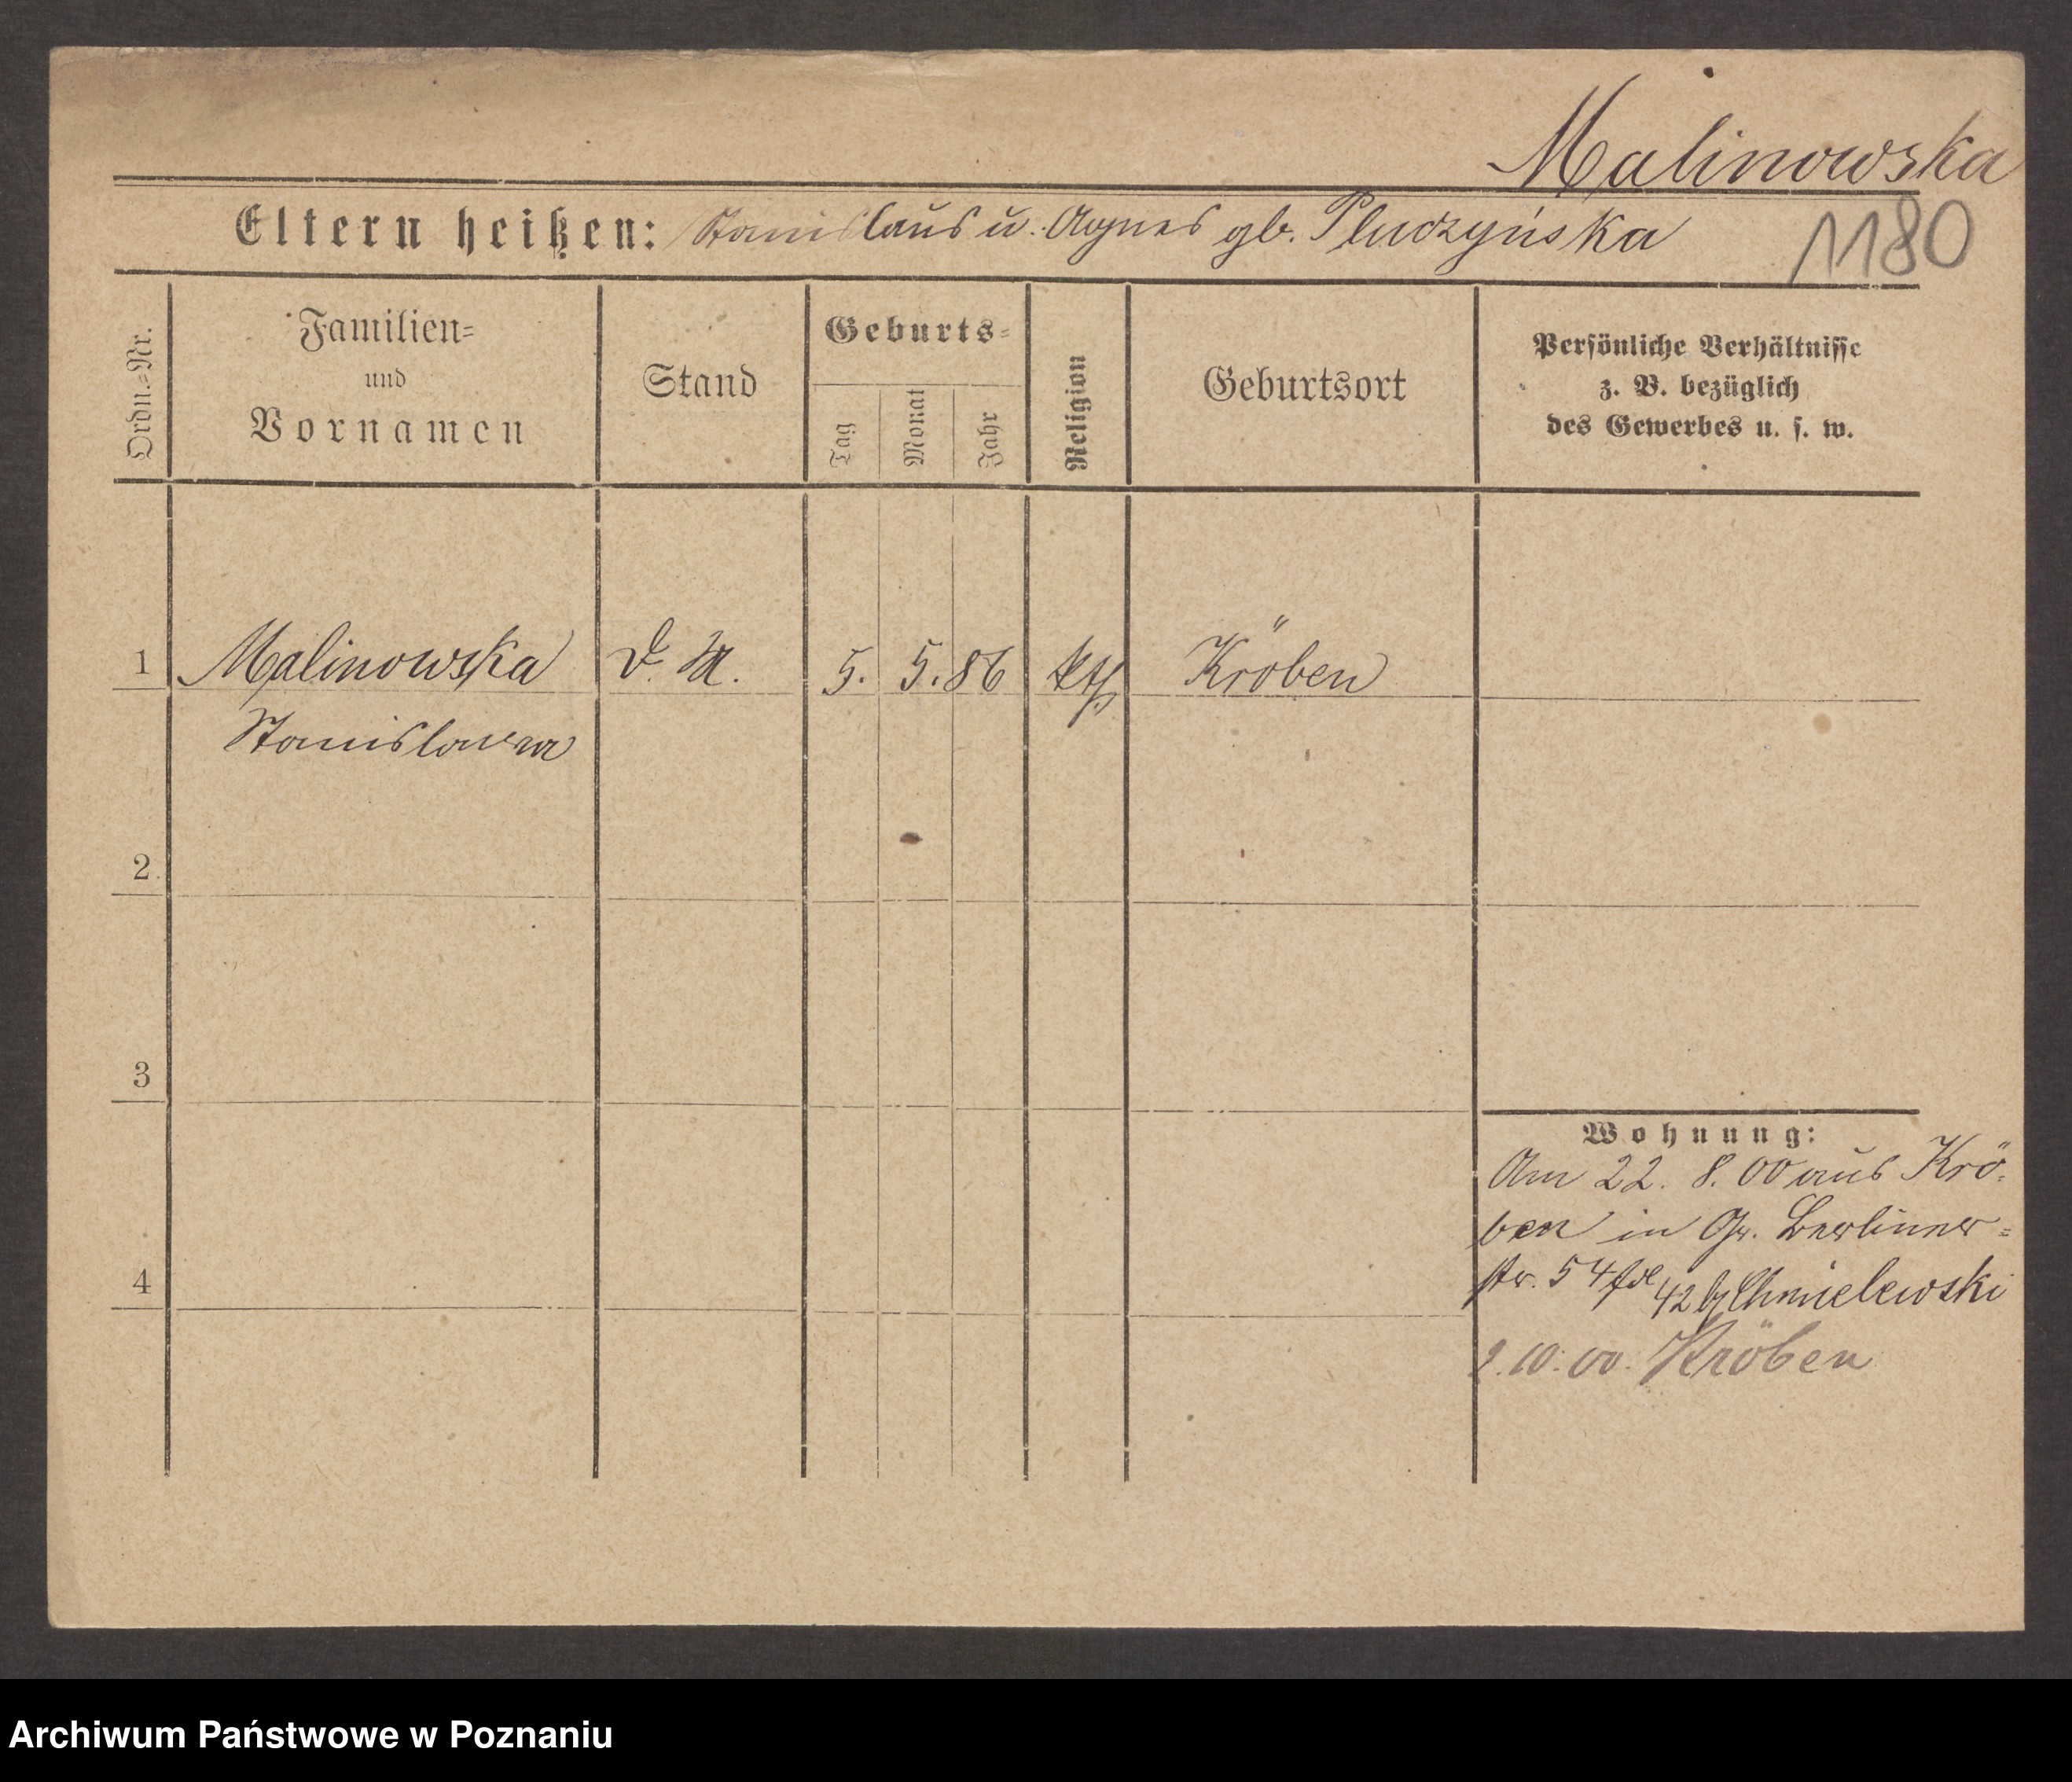 Malinowska
Eltern heißen: Stanislaus u. Agnes gb. Pluczyńska
1180
Ordn.=Nr.
Familien=
und
Vornamen
Stand
Geburts=
Tag
Monat
Jahr
Religion
Geburtsort
Persönliche Verhältnisse
z. B. bezüglich
des Gewerbes u. s. w.
1 Malinowska 5. 5. 86 kth Kröben
Stanislawa
2
3
Wohnung:
Am 22. 8. 00 aus Krö-
ben in Gr. Berliner-
str. 54 42 b/ Chmielewski
4
2.10.00. Kröben
Archiwum Państwowe w Poznaniu